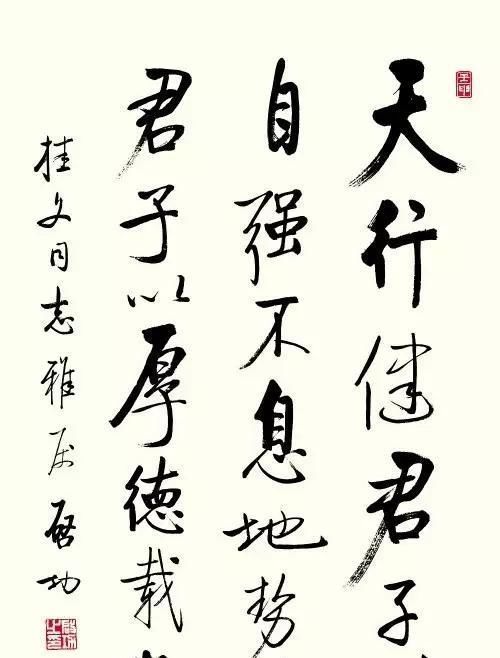 天行健君子
自强不息地势
君子以厚德載
桂文同志雅属 啓功